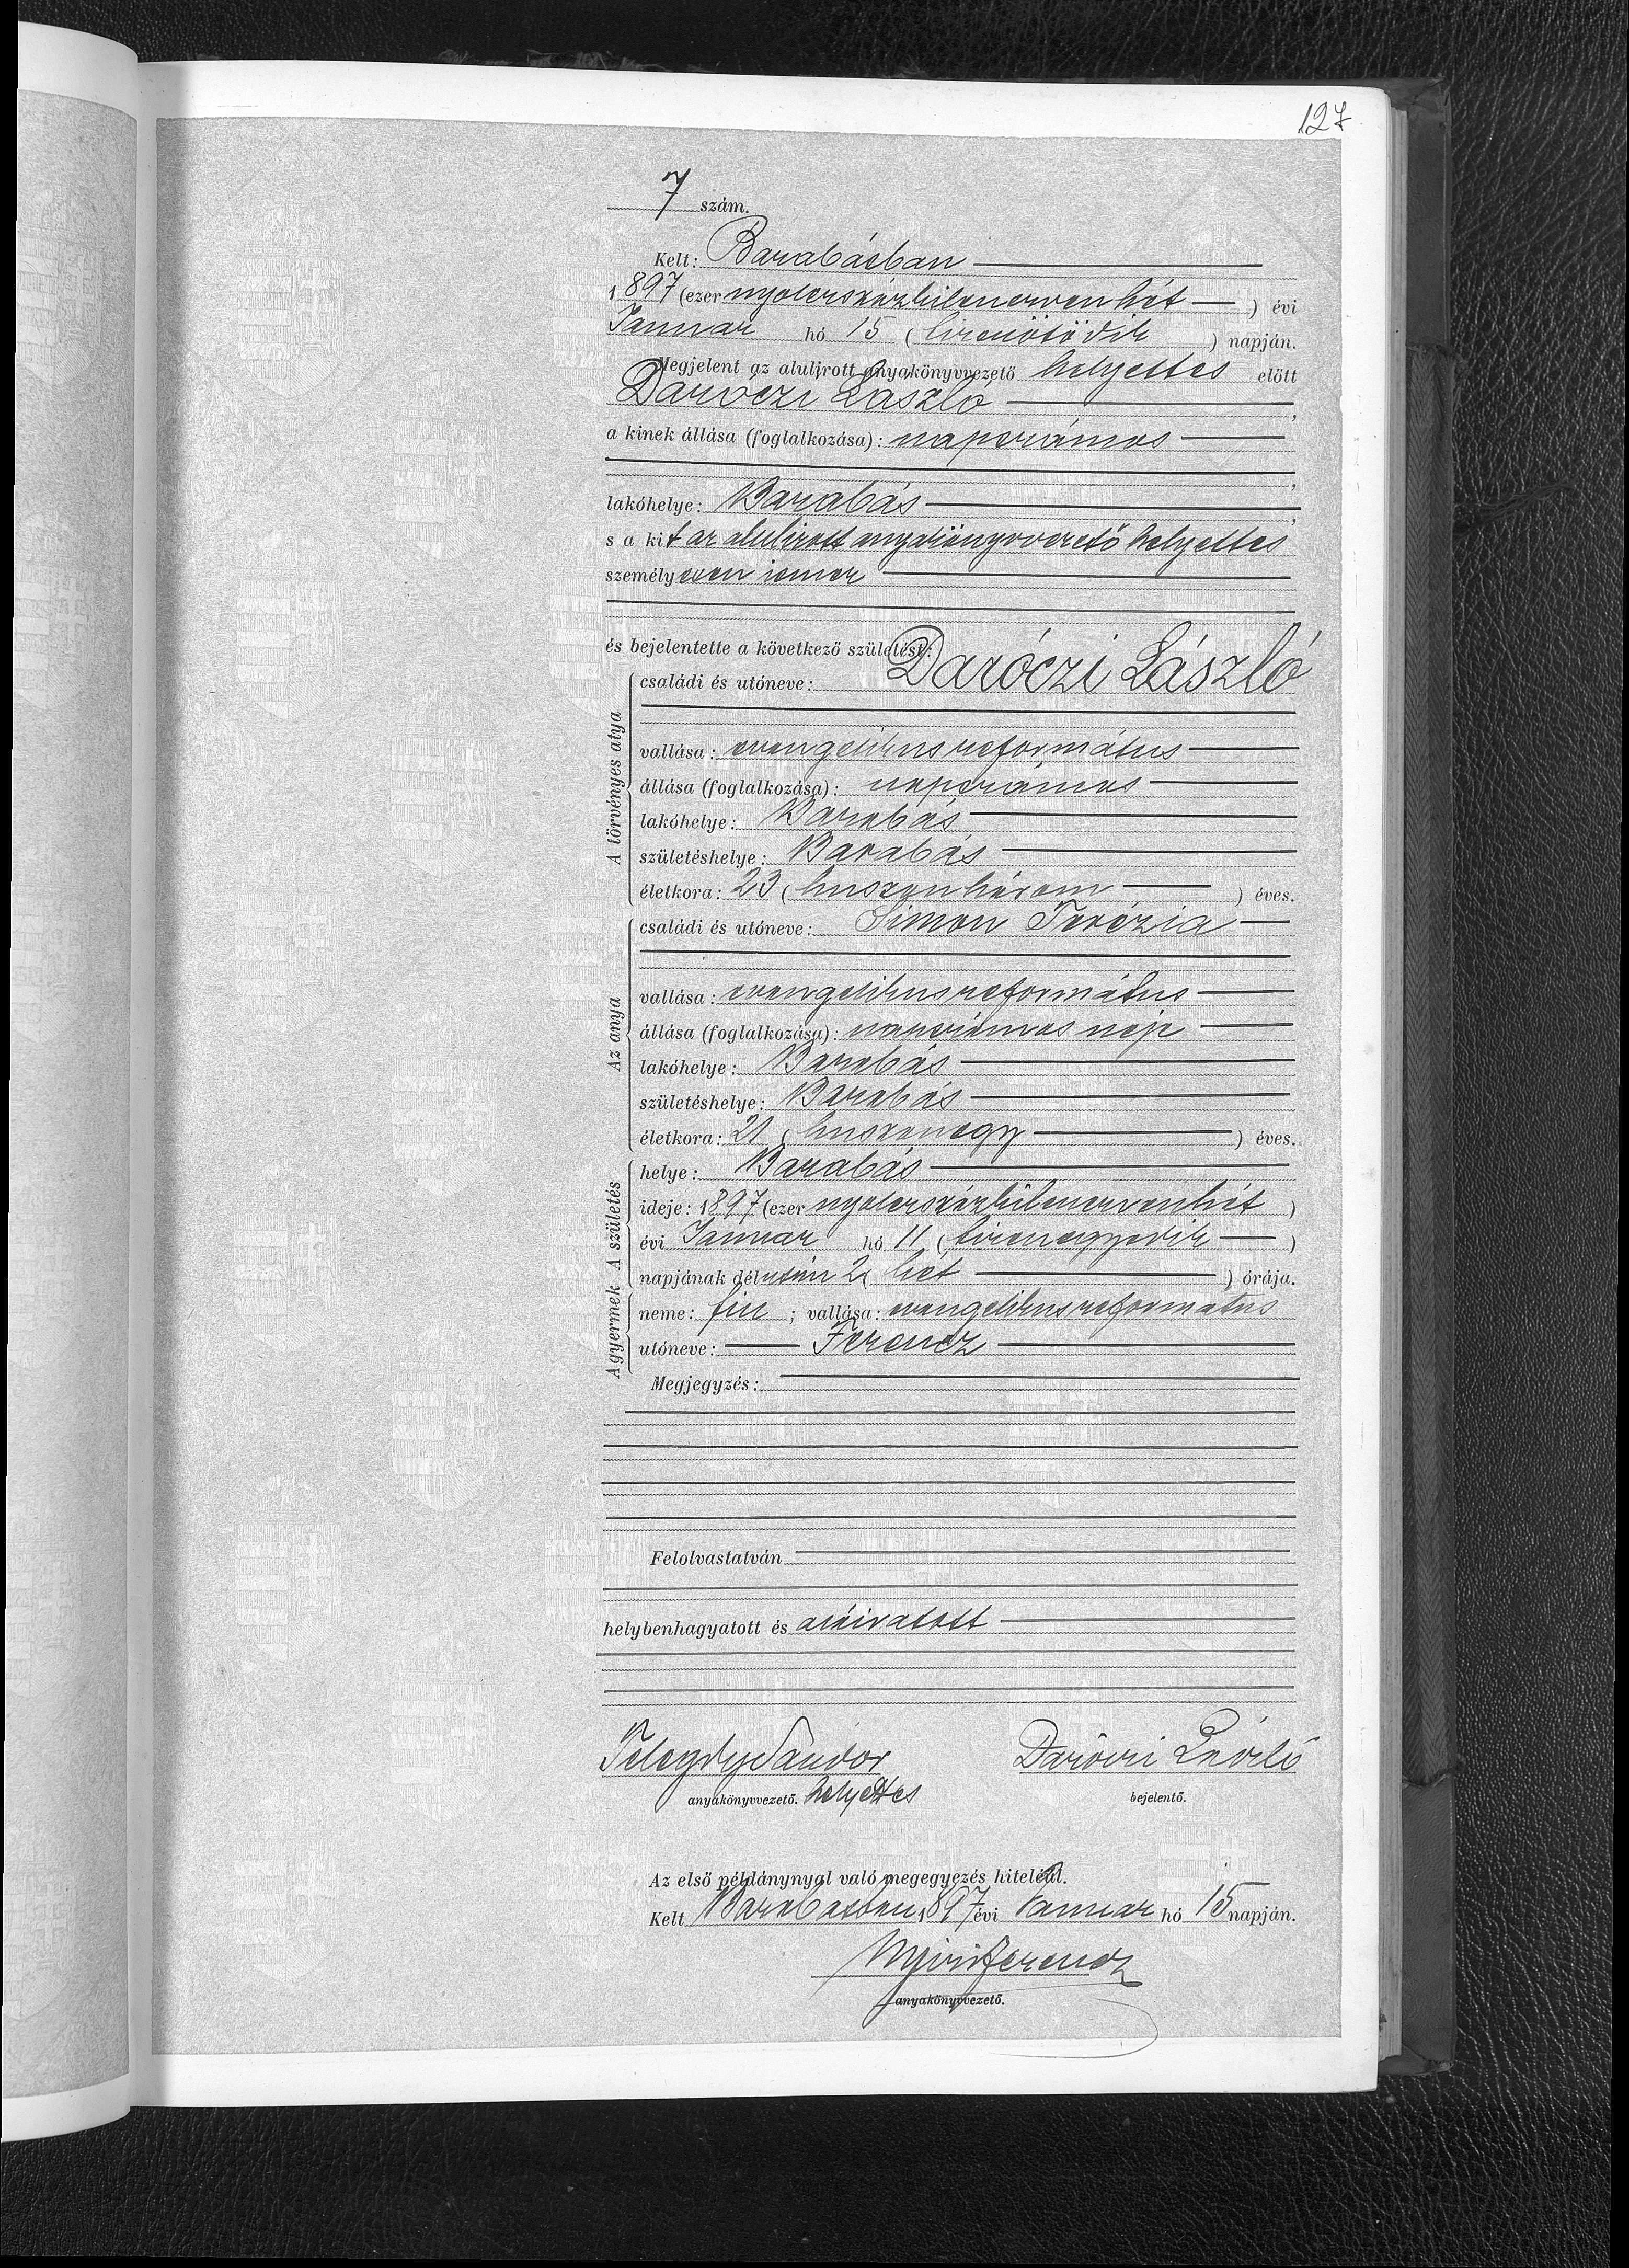 127
7 szám.
Kelt: Barabásban
1897 (ezer nyolczszázkilenczvenhét ) évi
Januar hó 15 ( tizenötödik ) napján.
Megjelent az alulirott anyakönyvvezető helyettes előtt
Daróczi László ,
a kinek állása (foglalkozása): napszámos
,
lakóhelye: Barabás ,
s a kit az alulirott anyakönyvvezető helyettes
személyesen ismer
és bejelentette a következő születést:
A törvényes atya
családi és utóneve: Daróczi László
vallása: evangelikus református
állása (foglalkozása): napszámos
lakóhelye: Barabás
születéshelye: Barabás
életkora: 23 ( huszonhárom ) éves.
Az anya
családi és utóneve: Simon Terézia
vallása: evangelikus református
állása (foglalkozása): napszámos neje
lakóhelye: Barabás
születéshelye: Barabás
életkora: 21 ( huszonegy ) éves.
A születés
helye: Barabás
ideje: 1897 (ezer nyolczszázkilenczvenhét )
évi Januar hó 11 ( tizenegyedik )
napjának délután 2 ( két ) órája.
A gyermek
neme: fiu ; vallása: evangelikus reformatus
utóneve: Ferencz
Megjegyzés:
Felolvastatván
helybenhagyatott és aláiratott
Telegdy Sándor Daróczi László
anyakönyvvezető. helyettes bejelentő.
Az első példánynyal való megegyezés hiteléül.
Kelt Barabásban 1897 évi Januar hó 15 napján.
Nyiri Ferencz
anyakönyvvezető.